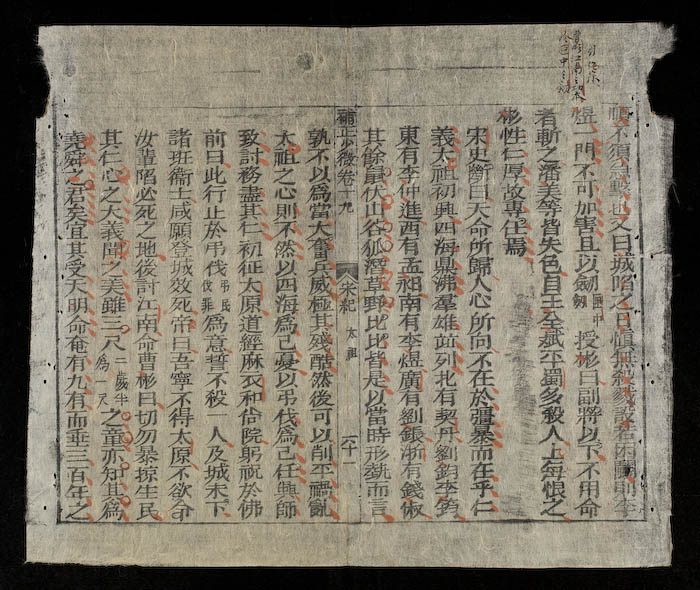 順不須急擊也又曰城陷之日慎無殺戮設若困鬭則李
煜一門不可加害且以劒 授彬曰副將以下不用命
者斬之潘美等皆失色自王全斌平蜀多殺人上每恨之
彬性仁厚故專任焉
宋史斷曰天命所歸人心所向不在於彊暴而在乎仁
義太祖初興四海鼎沸羣雄並列北有契丹劉鈞李筠
東有李仲進西有孟昶南有李煜廣有劉鋹浙有錢俶
其餘鼠伏山谷狐潛草野比比皆是以當時形勢而言
補正少微卷十九 宋紀 太祖 六十一
孰不以爲當大奮兵威極其殘酷然後可以削平禍亂
太祖之心則不然以四海爲己憂以弔伐爲己任興師
致討務盡其仁初征太原道經麻衣和尙院躬祝於佛
前曰此行止於弔伐弔民伐罪爲意誓不殺一人及城未下
諸班衞士咸願登城效死帝曰吾寧不得太原不欲令
汝輩陷必死之地後討江南命曹彬曰切勿暴掠生民
其仁心之大義聞之美雖三尺二歲半爲一尺之童亦知其爲
堯舜之君矣宜其受天明命奄有九有而垂三百年之